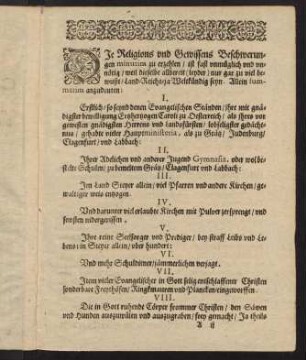 DIe Religions vnd Gewissens Beschwerun-
gen minutim zu erzehlen / ist fast vnmüglich vnd vn-
nötig / weil dieselbe allbereit / leyder / nur gar zu viel be-
wust / Land-Reichs- ja Weltkündig seyn. Allein sum-
matim anzudeuten:
I.
Erstlich / so seynd denen Evangelischen Ständen / ihre mit gnä-
digster bewilligung Ertzhertzogen Caroli zu Oesterreich / als ihres von
gewesten gnädigsten Herrens vnd Landsfürsten / lobseligster gedächt-
nus / gehabte vnter Hauptministeria, als zu Grätz / Judenburg /
Clagenfurt / vnd Labbach:
II.
Ihrer Adelichen vnd anderer Jugend Gymnasia, oder wolbe-
stelte Schulen / zu bemeltem Grätz / Clagenfurt vnd Labbach:
III.
Im Land Steyer allein / viel Pfarren vnd andere Kirchen / ge-
waltiger weis entzogen.
IV.
Vnd darunter viel erlaubte Kirchen mit Pulver zersprengt / vnd
sonsten nidergerissen.
V.
Ihre reine Seelsorger vnd Prediger / bey straff Leibs vnd Le-
bens / in Steyer allein / vber hundert:
VI.
Vnd mehr Schuldiener / jämmerlichen verjagt.
VII.
Item vieler Evangelischer in Gott selig entschlaffener Christen
sonderbare Freythöfen / Ringkmauren vnd Plancken eingeworffen.
VIII.
Die in Gott ruhende Cörper frommer Christen / den Säwen
vnd Hunden außzuwülen vnd außzugraben / frey gemacht / Ja theils
A ij